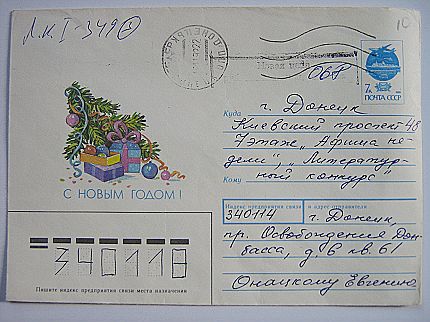 Л.К I-349
10
7к
ПОЧТА СССР
г. Донецк
Куда
Киевский проспект 48
7 этаж „Афиша не-
дели", „Литератур-
Кому
ный конкурс"
С НОВЫМ ГОДОМ!
Индекс предприятия связи и адрес отправителя
340114 г. Донецк,
пр. Освобождения Дон-
басса, д. 6 кв. 61
Онацкому Евгению
340118
Пишите индекс предприятия связи места назначения